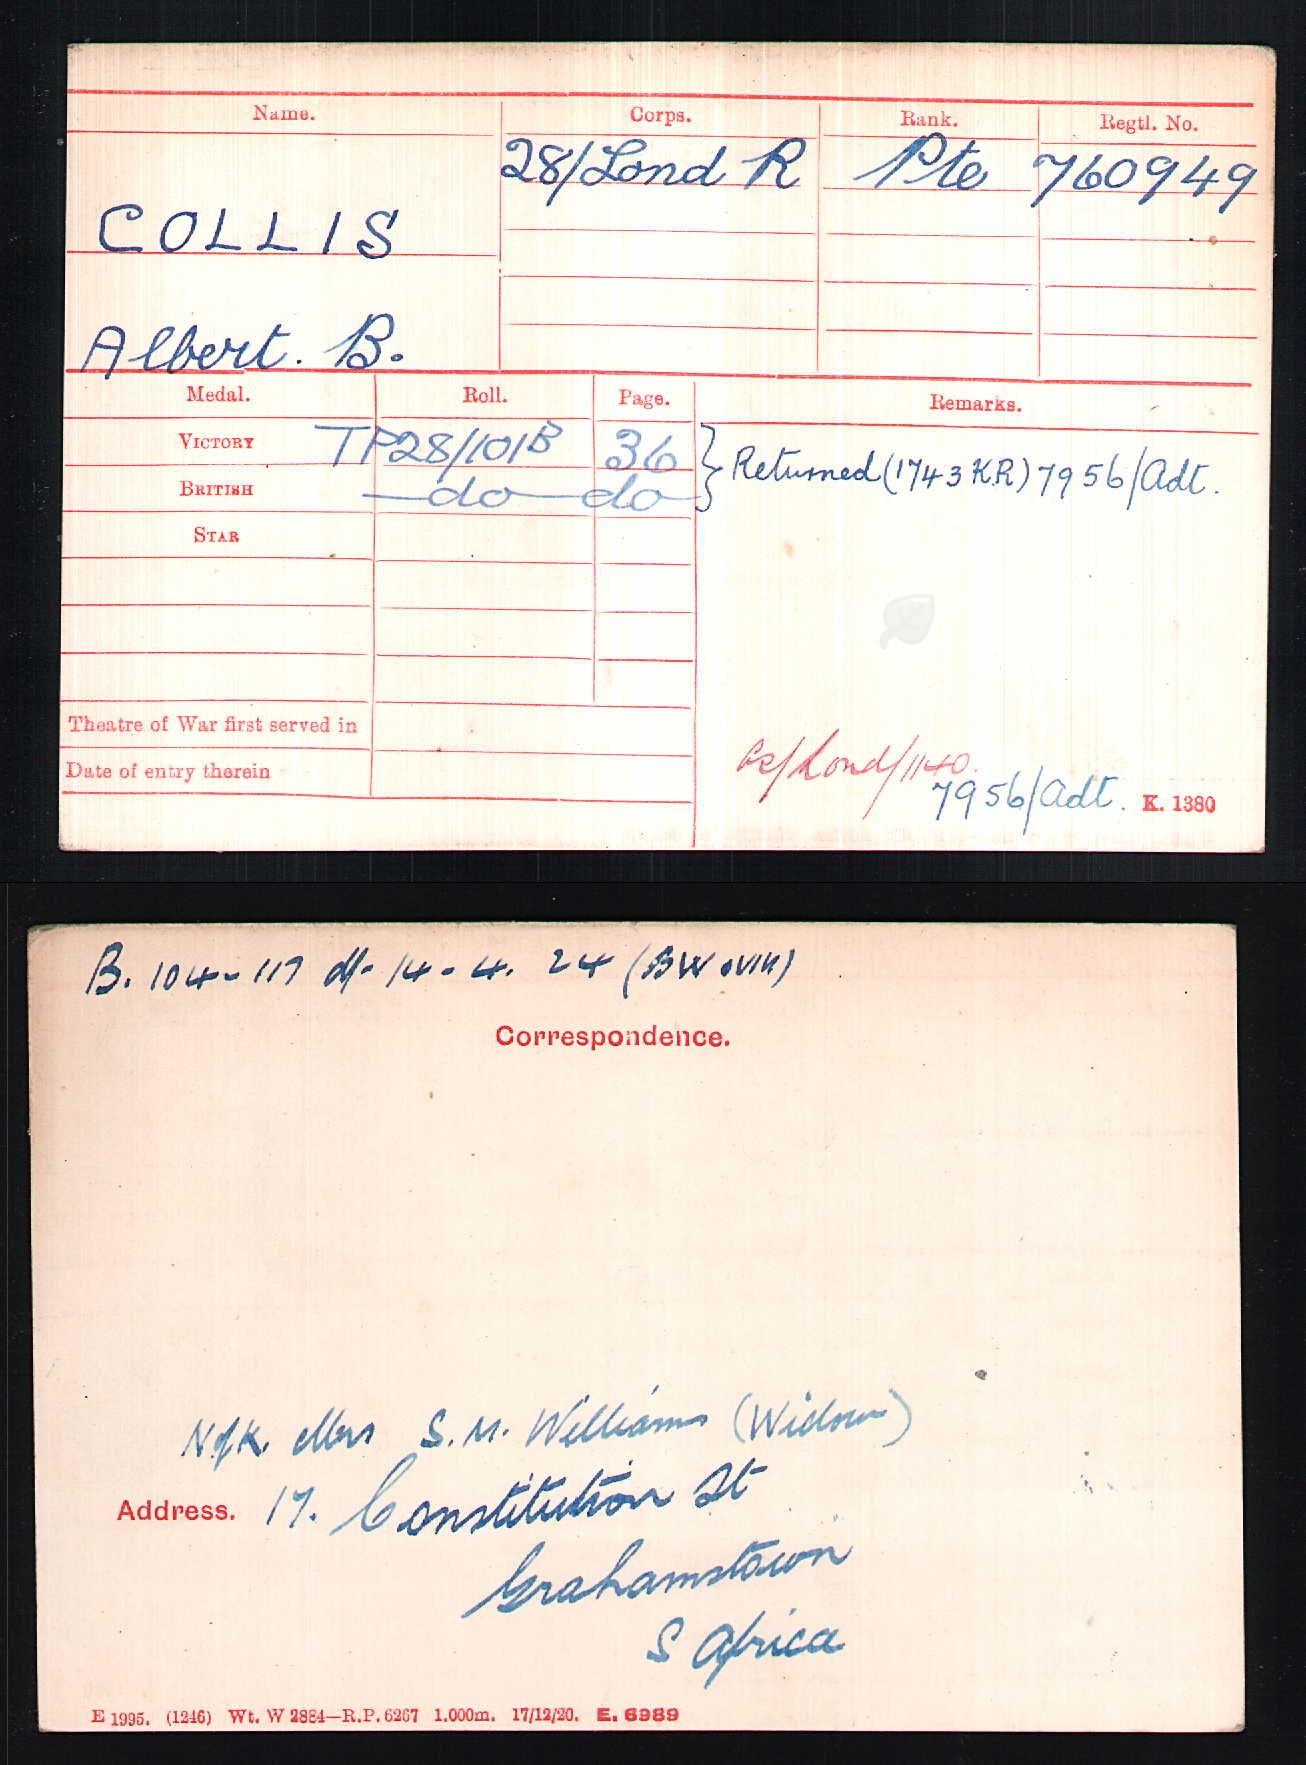 Name. Corps. Rank. Regtl. No.
28/Lond R Pte 760949
COLLIS
Albert. B.
Medal. Roll. Page. Remarks.
VICTORY TP28/101B 36
Returned (1743 KR) 7956/Adt.
BRITISH do do
STAR
Theatre of War first served in
Date of entry therein
/Lond/1140.
7956/Adt. K. 1380
B. 104-117 df- 14-4. 24 (BW & VM)
Correspondence.
N.of.K. Mrs S. M. Williams (Widow)
Address. 17. Constitution St
Grahamstown
S Africa
E 1995. (1246) Wt. W 2884—R.P. 6267 1.000m. 17/12/20. E. 6989